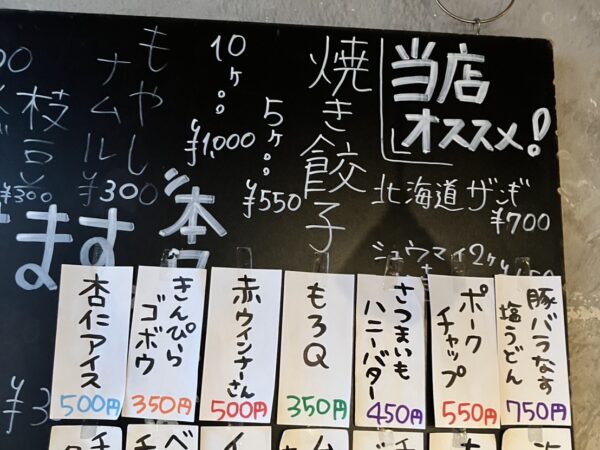 当店
オススメ!
北海道ザンギ
¥700
シュウマイ2ケ
焼き餃子
5ケ
¥550
10ケ
¥1,000
もやし
ナムル
¥300
枝豆
¥300
ます
本
豚バラなす
塩うどん
750円
ポーク
チャップ
550円
さつまいも
ハニーバター
450円
もろQ
350円
赤ウインナーさん
500円
きんぴら
ゴボウ
350円
杏仁アイス
500円